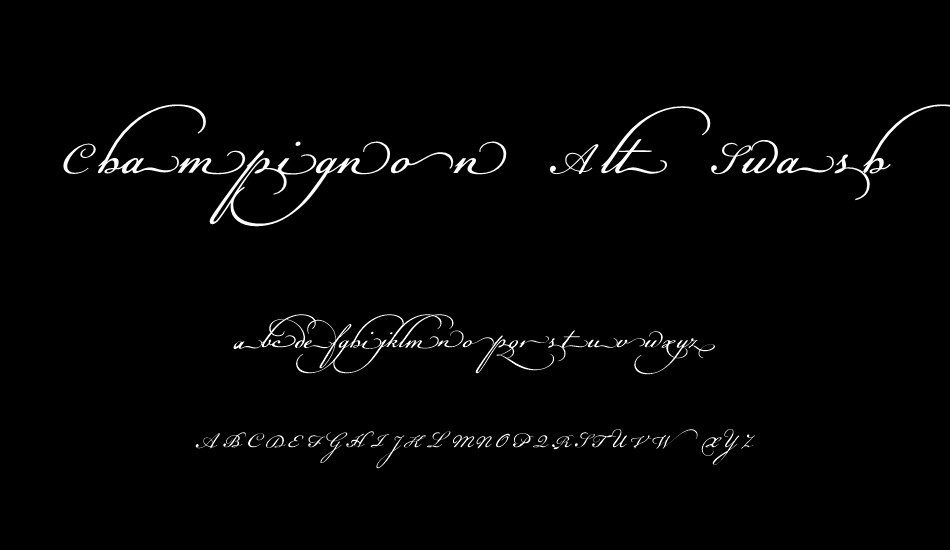 Champignon Alt Swash
abcdefghijklmnopqrstuvwxyz
ABCDEFGHIJKLMNOPQRSTUVWXYZ